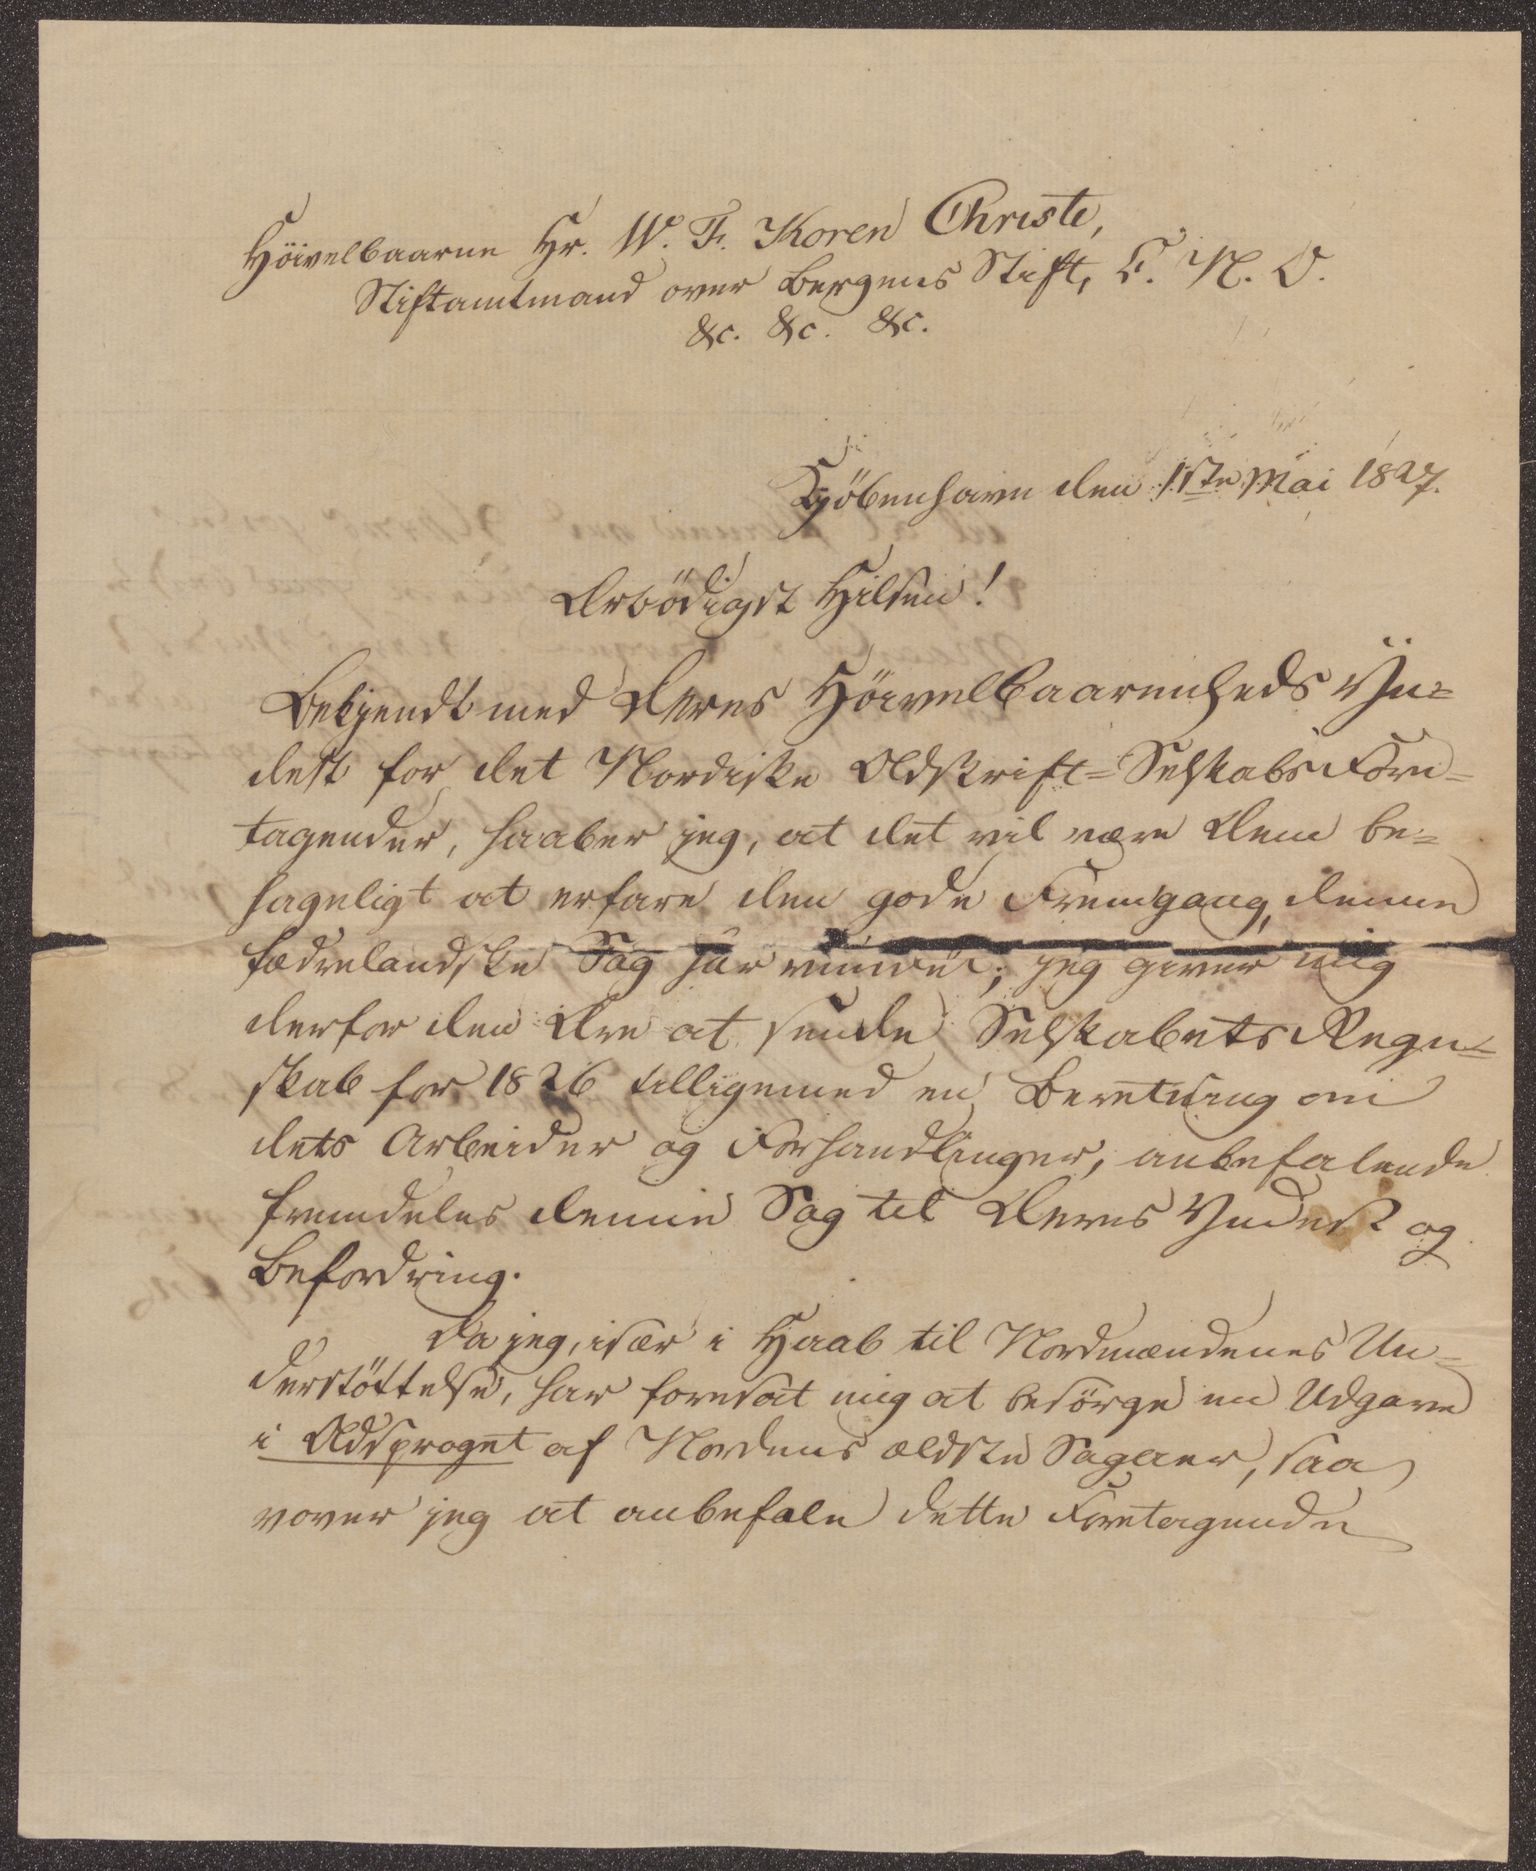 Höivelbaarne Hr. W. F. Koren Christie,
Stiftamtmand over Bergens Stift, C. N. O.
&c. &c. &c.
Kjöbenhavn den 1ste Mai 1827.
Ærbödigst Hilsen!
Bekjendt med Deres Höivelbaarenheds Yn=
dest for det Nordiske Oldskrift=Selskabs Fore=
tagender, haaber jeg, at det vil være Dem be=
hageligt at erfare den gode Fremgang, denne
fædrelandske Sag har vundet; jeg giver mig
derfor den Ære at sende Selskabets Regn=
skab for 1826 tilligemed en Beretning om
dets Arbeider og Forhandlinger, anbefalende
fremdeles denne Sag til Deres Yndest og
Befordring.
Da jeg, især i Haab til Nordmændenes Un=
derstöttelse, har foresat mig at besörge en Udgave
i Oldsproget af Nordens ældste Sagaer, saa
vover jeg at anbefale dette Foretagende